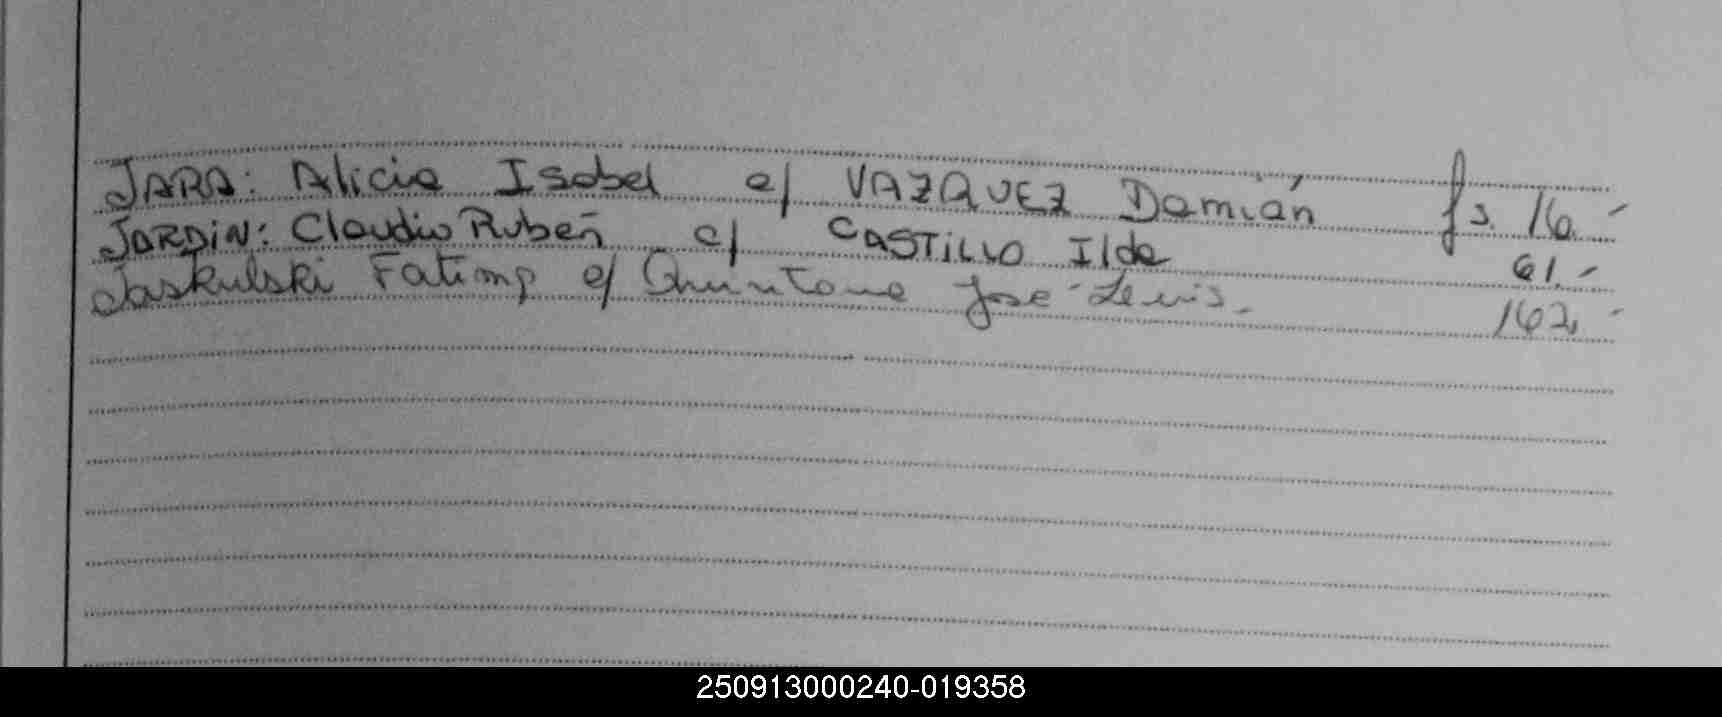 JARA: Alicia Isabel c/ VAZQUEZ Damián fs. 16.-
JARDIN: Claudio Rubén c/ CASTILLO Ilda 61.-
Jaskulski Fatima c/ Quintana José Luis.- 162.-
250913000240-019358